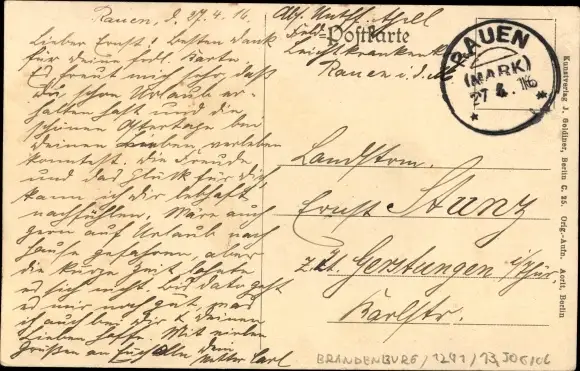 Rauen, d. 27.4.16.
Lieber Ernst! Besten Dank
für deine frdl. Karte.
Es freut mich sehr, daß
Du schon Urlaub er-
halten hast und die
schönen Ostertage bei
Deinen Lieben verleben
konntest. Die Freude
und das Glück für Dich
kann ich dir lebhaft
nachfühlen. Wäre auch
gern auf Urlaub nach
Hause gefahren, aber
die kurze Zeit lohnte
es sich nicht. Bis dato geht
es mir noch gut, was
ich auch bei Dir & Deinen
Lieben hoffe. Mit vielen
Grüßen an Euch Alle Dein
Vetter Carl
Postkarte
Feld-
Leichtkrankenk.
Rauen i. d. M.
RAUEN
(MARK)
27.4.16
Landstrm.
Ernst Stunz
z. Zt. Gerstungen i/Thür.
Karlstr.
Kunstverlag J. Goldiner, Berlin C. 25. Orig.-Aufn. Aorit, Berlin
BRANDENBURG/1241/